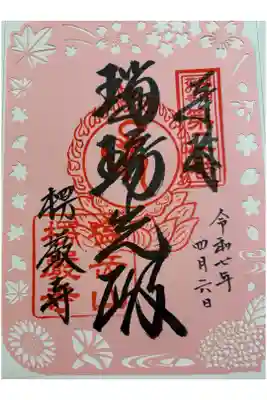 奉拝
令和七年
四月六日
瑠璃光殿
楞厳寺